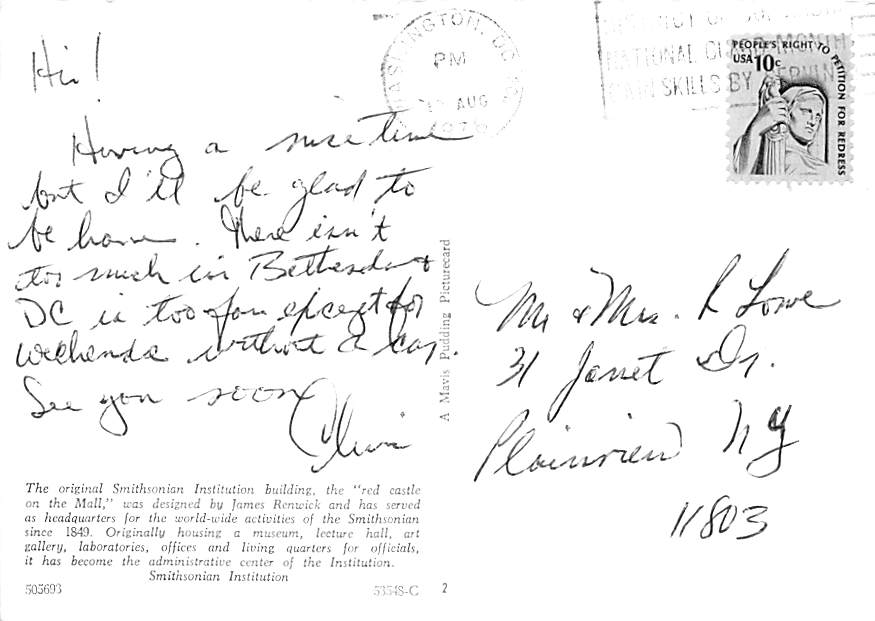 Hi!
Having a nice time
but I'll be glad to
be home. There isn't
too much in Bethesda &
DC is too far except for
weekends without a car.
See you soon
WASHINGTON, DC
PM
AUG
1976
NATIONAL GUARD MONTH
SKILLS BY SERVING
PEOPLE'S RIGHT TO PETITION FOR REDRESS
USA 10c
A Mavis Pudding Picturecard
Mr & Mrs. R Lowe
31 Janet Dr.
Plainview NY
11803
The original Smithsonian Institution building, the "red castle
on the Mall," was designed by James Renwick and has served
as headquarters for the world-wide activities of the Smithsonian
since 1849. Originally housing a museum, lecture hall, art
gallery, laboratories, offices and living quarters for officials,
it has become the administrative center of the Institution.
Smithsonian Institution
505693
53548-C
2